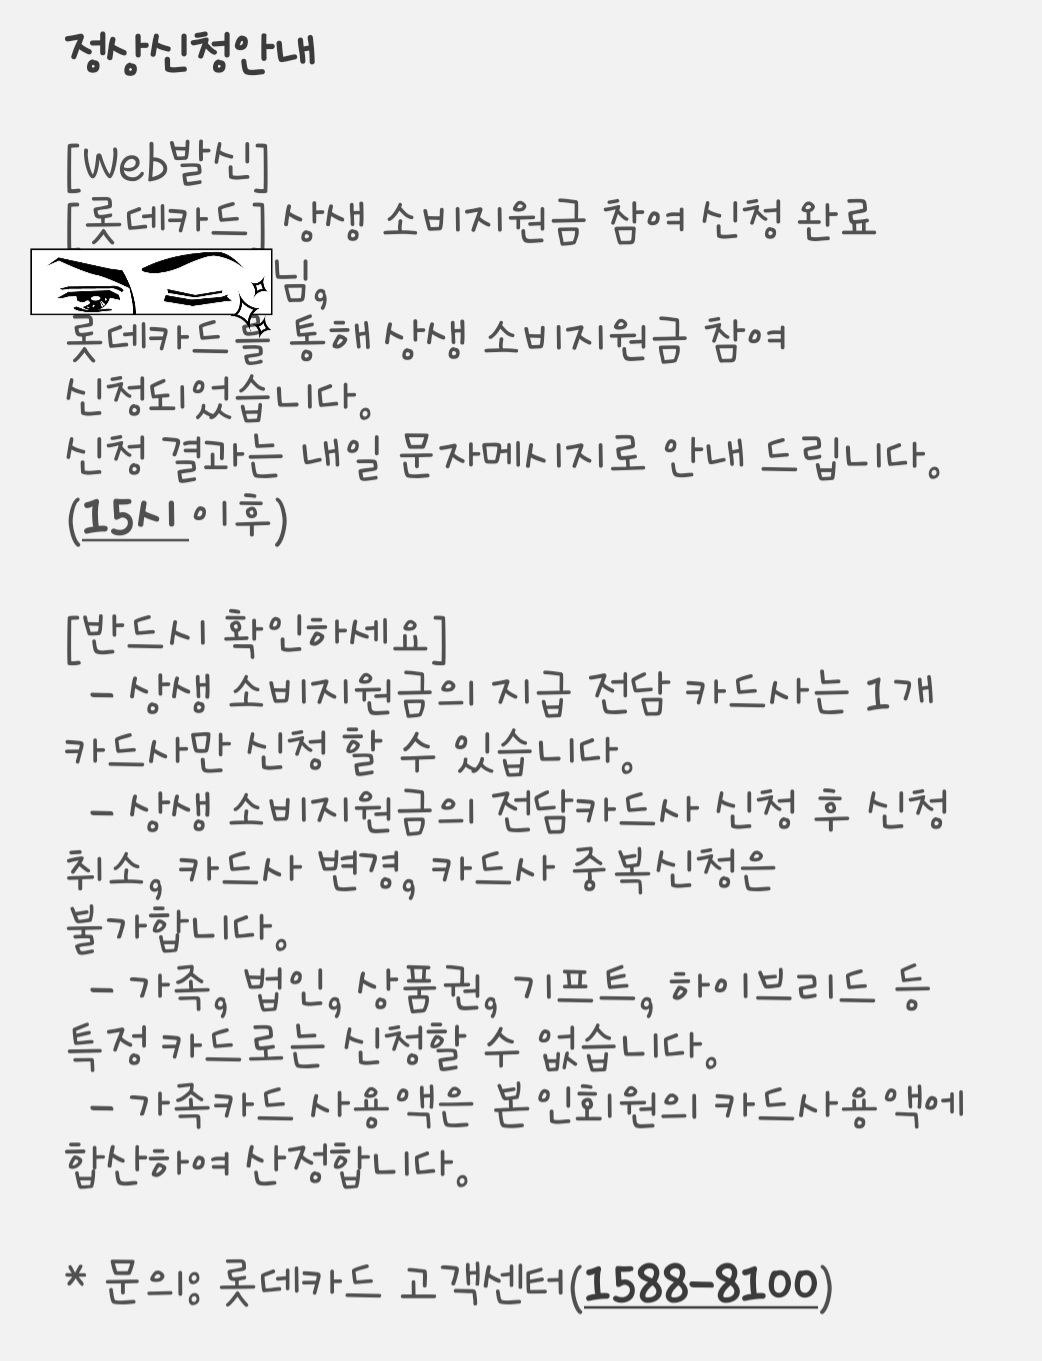 정상신청안내
[Web발신]
[롯데카드] 상생 소비지원금 참여 신청 완료
님,
롯데카드를 통해 상생 소비지원금 참여
신청되었습니다.
신청 결과는 내일 문자메시지로 안내 드립니다.
(15시 이후)
[반드시 확인하세요]
- 상생 소비지원금의 지급 전담 카드사는 1개
카드사만 신청 할 수 있습니다.
- 상생 소비지원금의 전담카드사 신청 후 신청
취소, 카드사 변경, 카드사 중복신청은
불가합니다.
- 가족, 법인, 상품권, 기프트, 하이브리드 등
특정 카드로는 신청할 수 없습니다.
- 가족카드 사용액은 본인회원의 카드사용액에
합산하여 산정합니다.
* 문의: 롯데카드 고객센터(1588-8100)